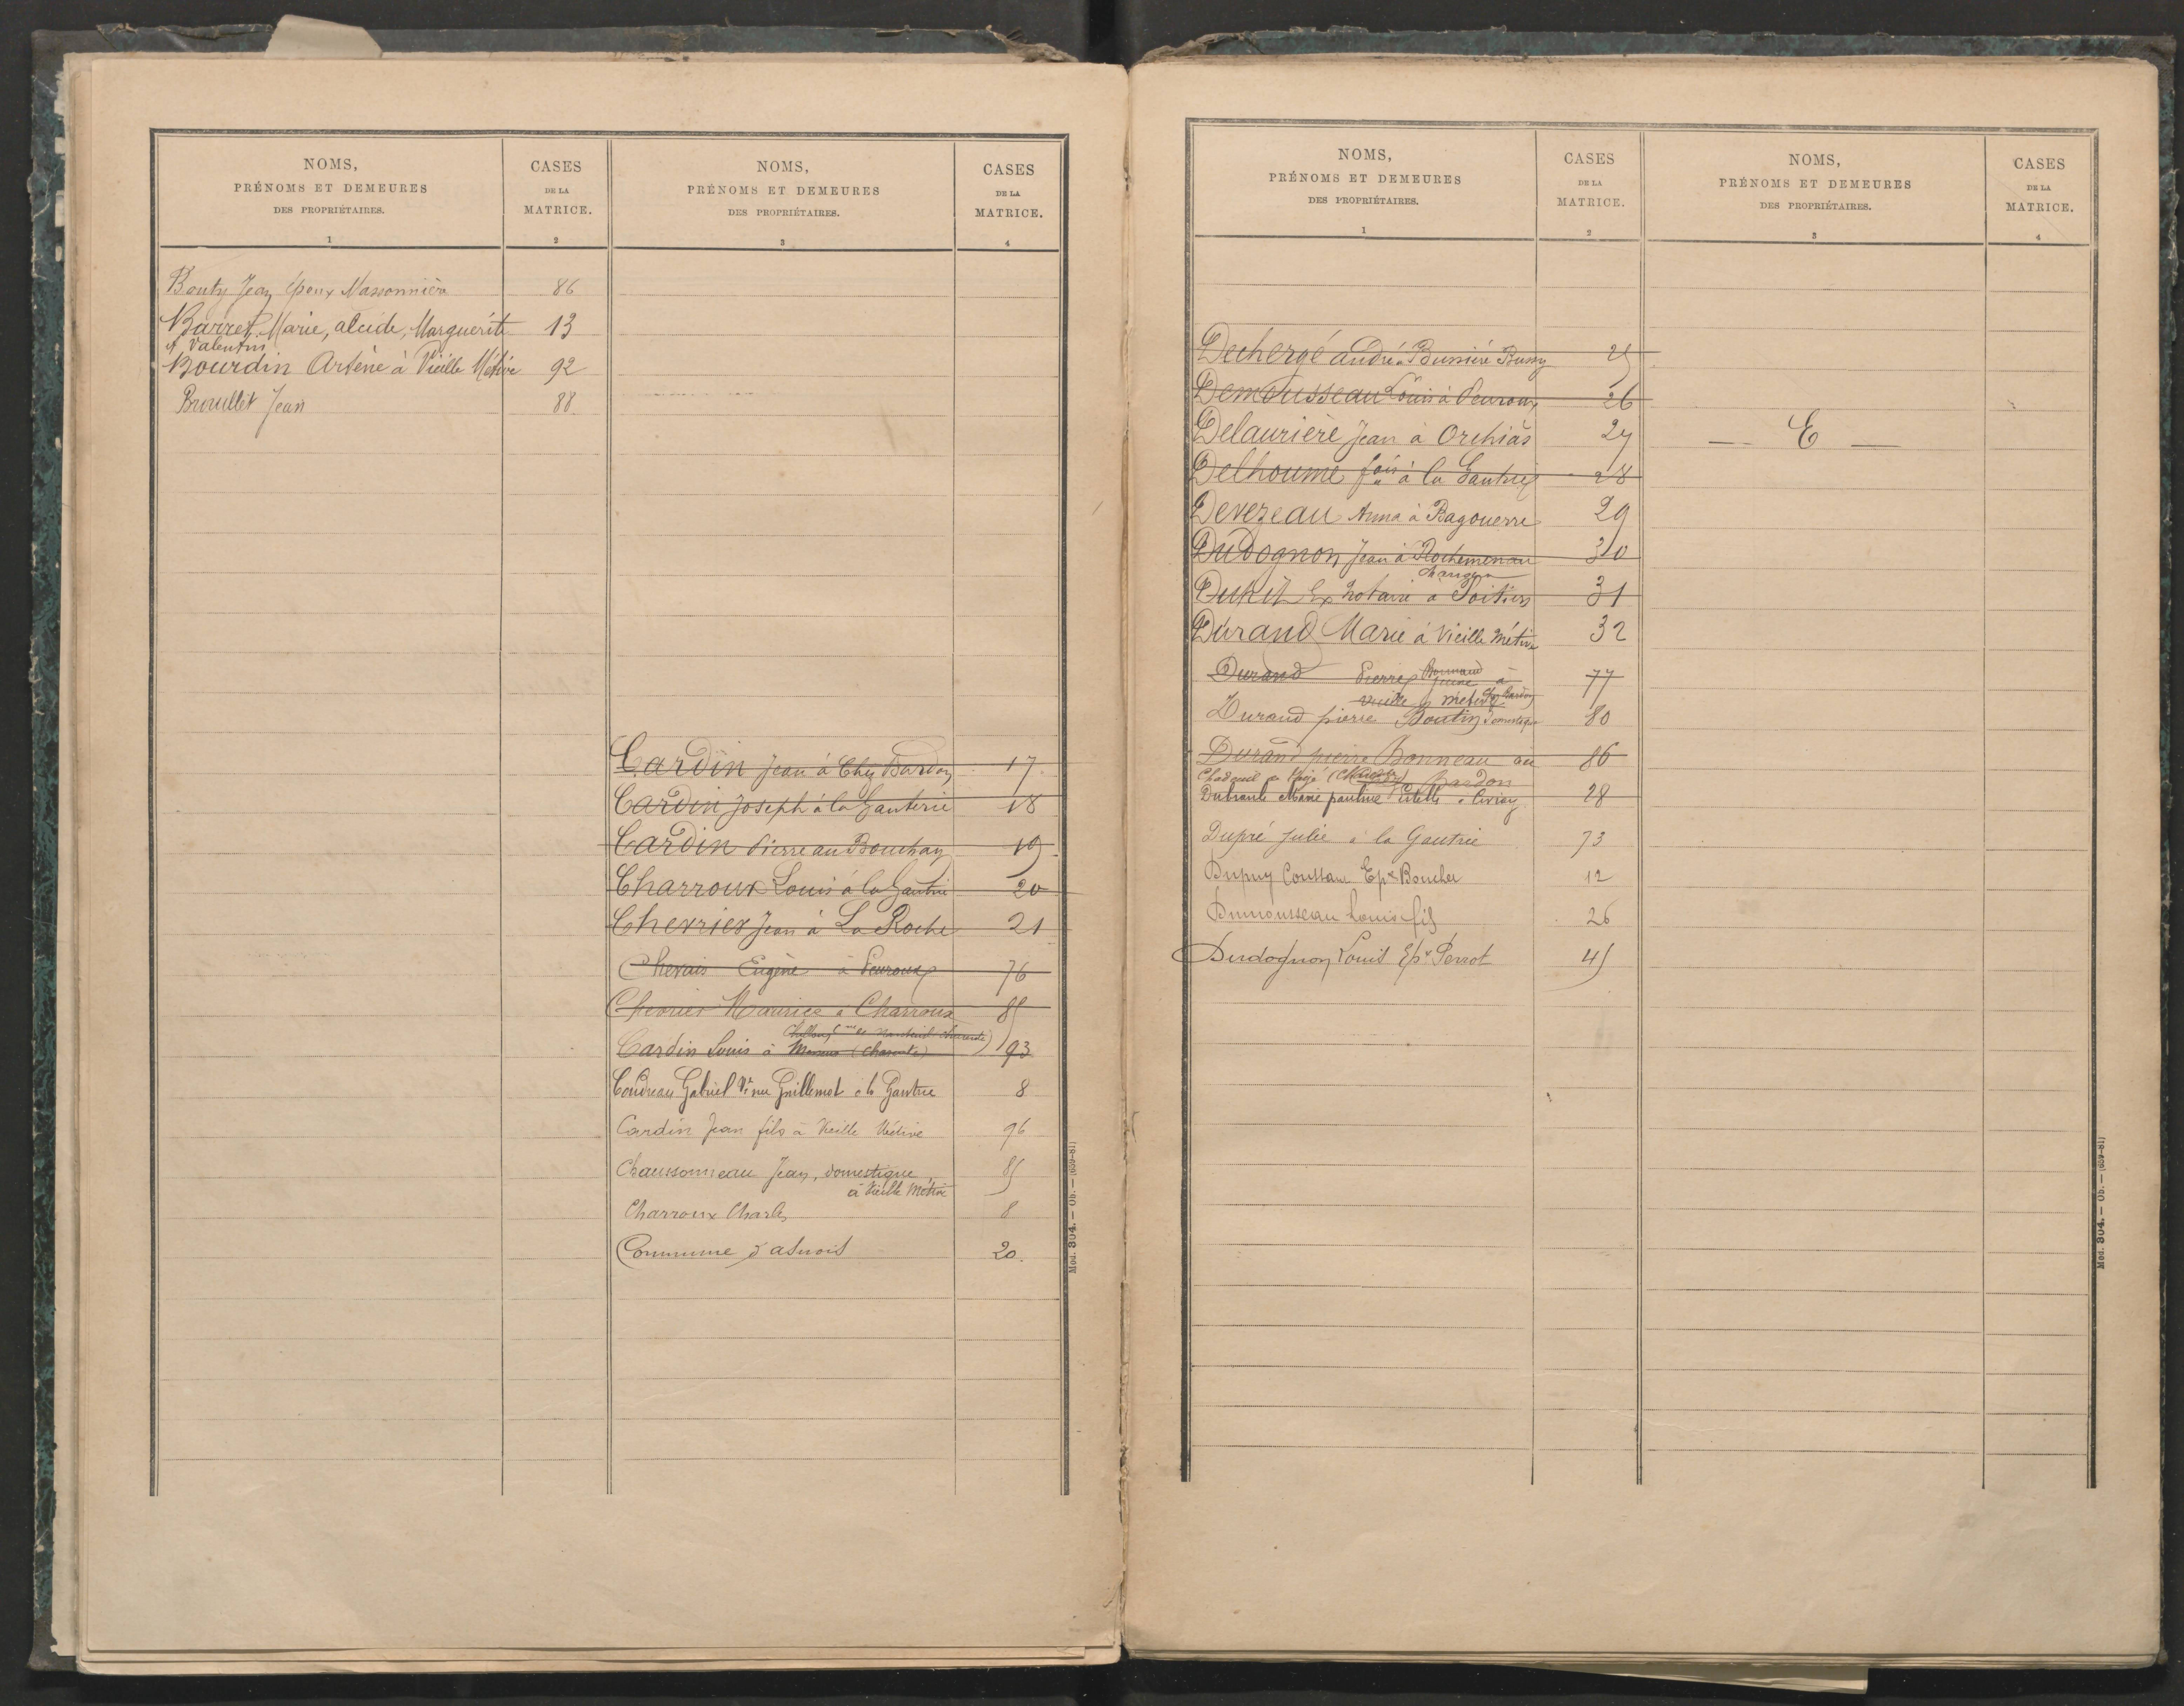 NOMS,
PRÉNOMS ET DEMEURES
DES PROPRIÉTAIRES.
1
CASES
DE LA
MATRICE.
2
Bouty Jean époux Massonnière 86
Barret Marie, alcide, Marguerite 13
et Valentin
Bourdin Artène à Vieille Métive 92
Brouillet Jean 88
NOMS,
PRÉNOMS ET DEMEURES
DES PROPRIÉTAIRES.
3
CASES
DE LA
MATRICE.
4
Cardin Jean à Chez Bardon 17
Cardin Joseph à la Gauterie 18
Cardin Pierre au Bouchay 19
Charroux Louis à la Gautrie 20
Chevrier Jean à La Roche 21
Chevais Eugène à Peuroux 76
Chevrier Maurice à Charroux 85
Nanteuil Charente)
Cardin Louis à (Charente) 93
Coudreau Gabriel Guillemot à la Gautrie 8
Cardin Jean fils à Vieille Métive 96
Chaussonneau Jean, domestique 85
à Vieille Métive
Charroux Charles 8
Commune d'asnois 20.
Mod. 304. — Ob. — (659-81)
NOMS,
PRÉNOMS ET DEMEURES
DES PROPRIÉTAIRES.
1
CASES
DE LA
MATRICE.
2
Dechergé andré à Bussière 25
Demousseau Louis à Peuroux 26
Delaurière Jean à Orchias 27
Delhoume fois à la Gautrie 28
Devezeau Anna à Bagouerre 29
Dudognon Jean à Rochemenau 30
Ex notaire à Poitiers 31
Durand Marie à Vieille Métive 32
Durand Pierre jeune à 77
Vieille Métive
Durand pierre Boutin domestique 80
Durand pierre Bonneau au 86
Bardon
Marie pauline Estelle à Civray 28
Dupré Julie à la Gautrie 73
Dupuy Coustau Epx Boucher 12
Dumousseau Louis fils 26
Dudognon Louis Epx Perrot 45
NOMS,
PRÉNOMS ET DEMEURES
DES PROPRIÉTAIRES.
3
CASES
DE LA
MATRICE.
4
— E —
Mod. 304. — Ob. — (659-81)